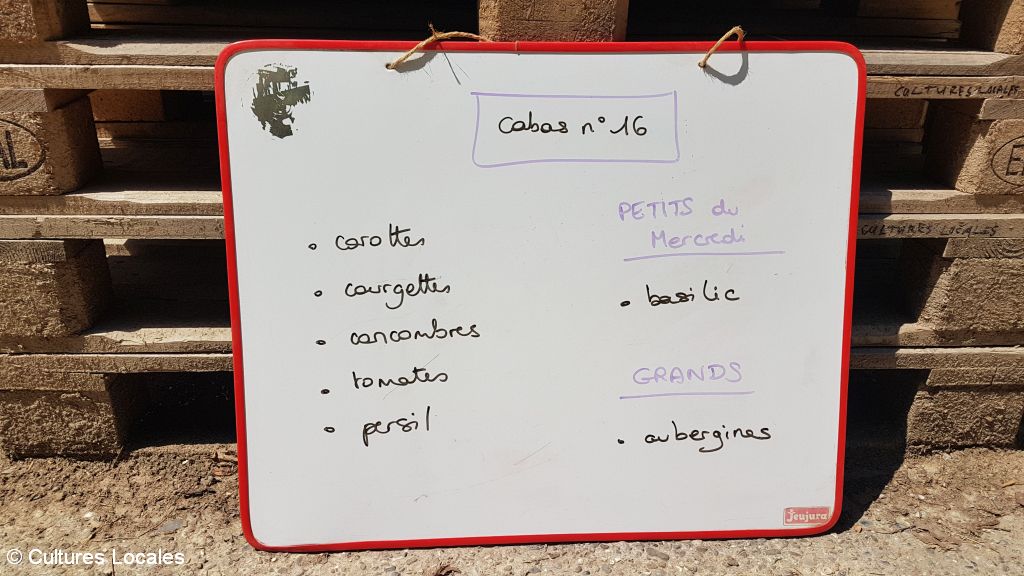 Cabas n°16
• carottes
• courgettes
• concombres
• tomates
• persil
PETITS du
Mercredi
• basilic
GRANDS
• aubergines
Jeujura
CULTURES LOCALES
CULTURES LOCALES
© Cultures Locales